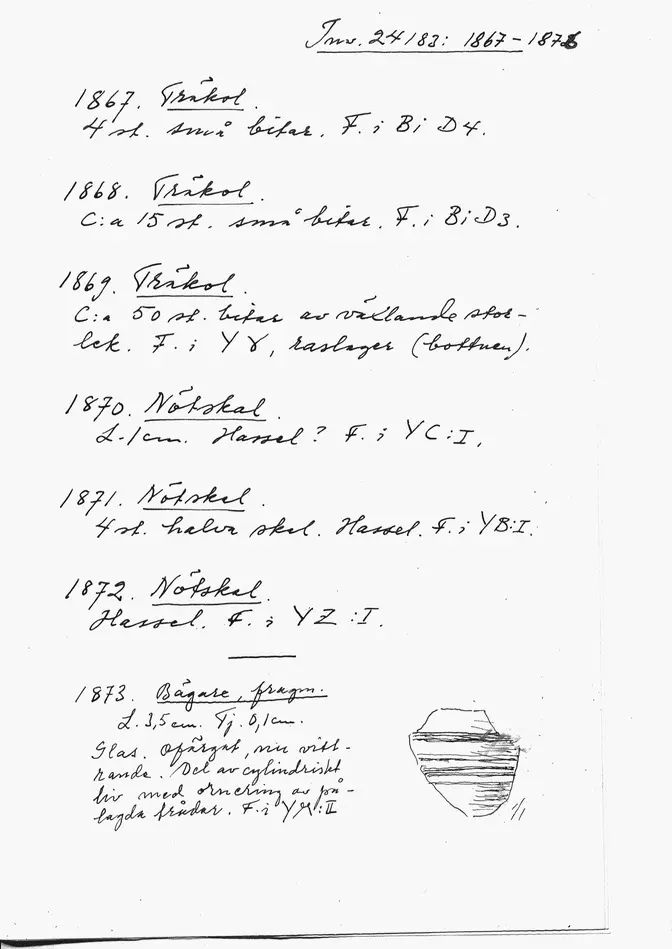 Inv. 24183: 1867-1873
1867. Träkol.
4 st. små bitar. F. i Bi D4.
1868. Träkol.
C:a 15 st. små bitar. F. i BiD3.
1869. Träkol.
C:a 50 st. bitar av växlande stor-
lek. F. i YX, raslager (bottnen).
1870. Nötskal.
L. 1 cm. Hassel? F. i YC:I.
1871. Nötskal.
4 st. halva skal. Hassel. F. i YB:I.
1872. Nötskal.
Hassel. F. i YZ:I.
1873. Bägare, fragm.
L. 3,5 cm. Tj. 0,1 cm.
Glas. Ofärgat, nu vitt-
rande. Del av cylindriskt
liv med ornering av på-
lagda trådar. F. i :II
1/1